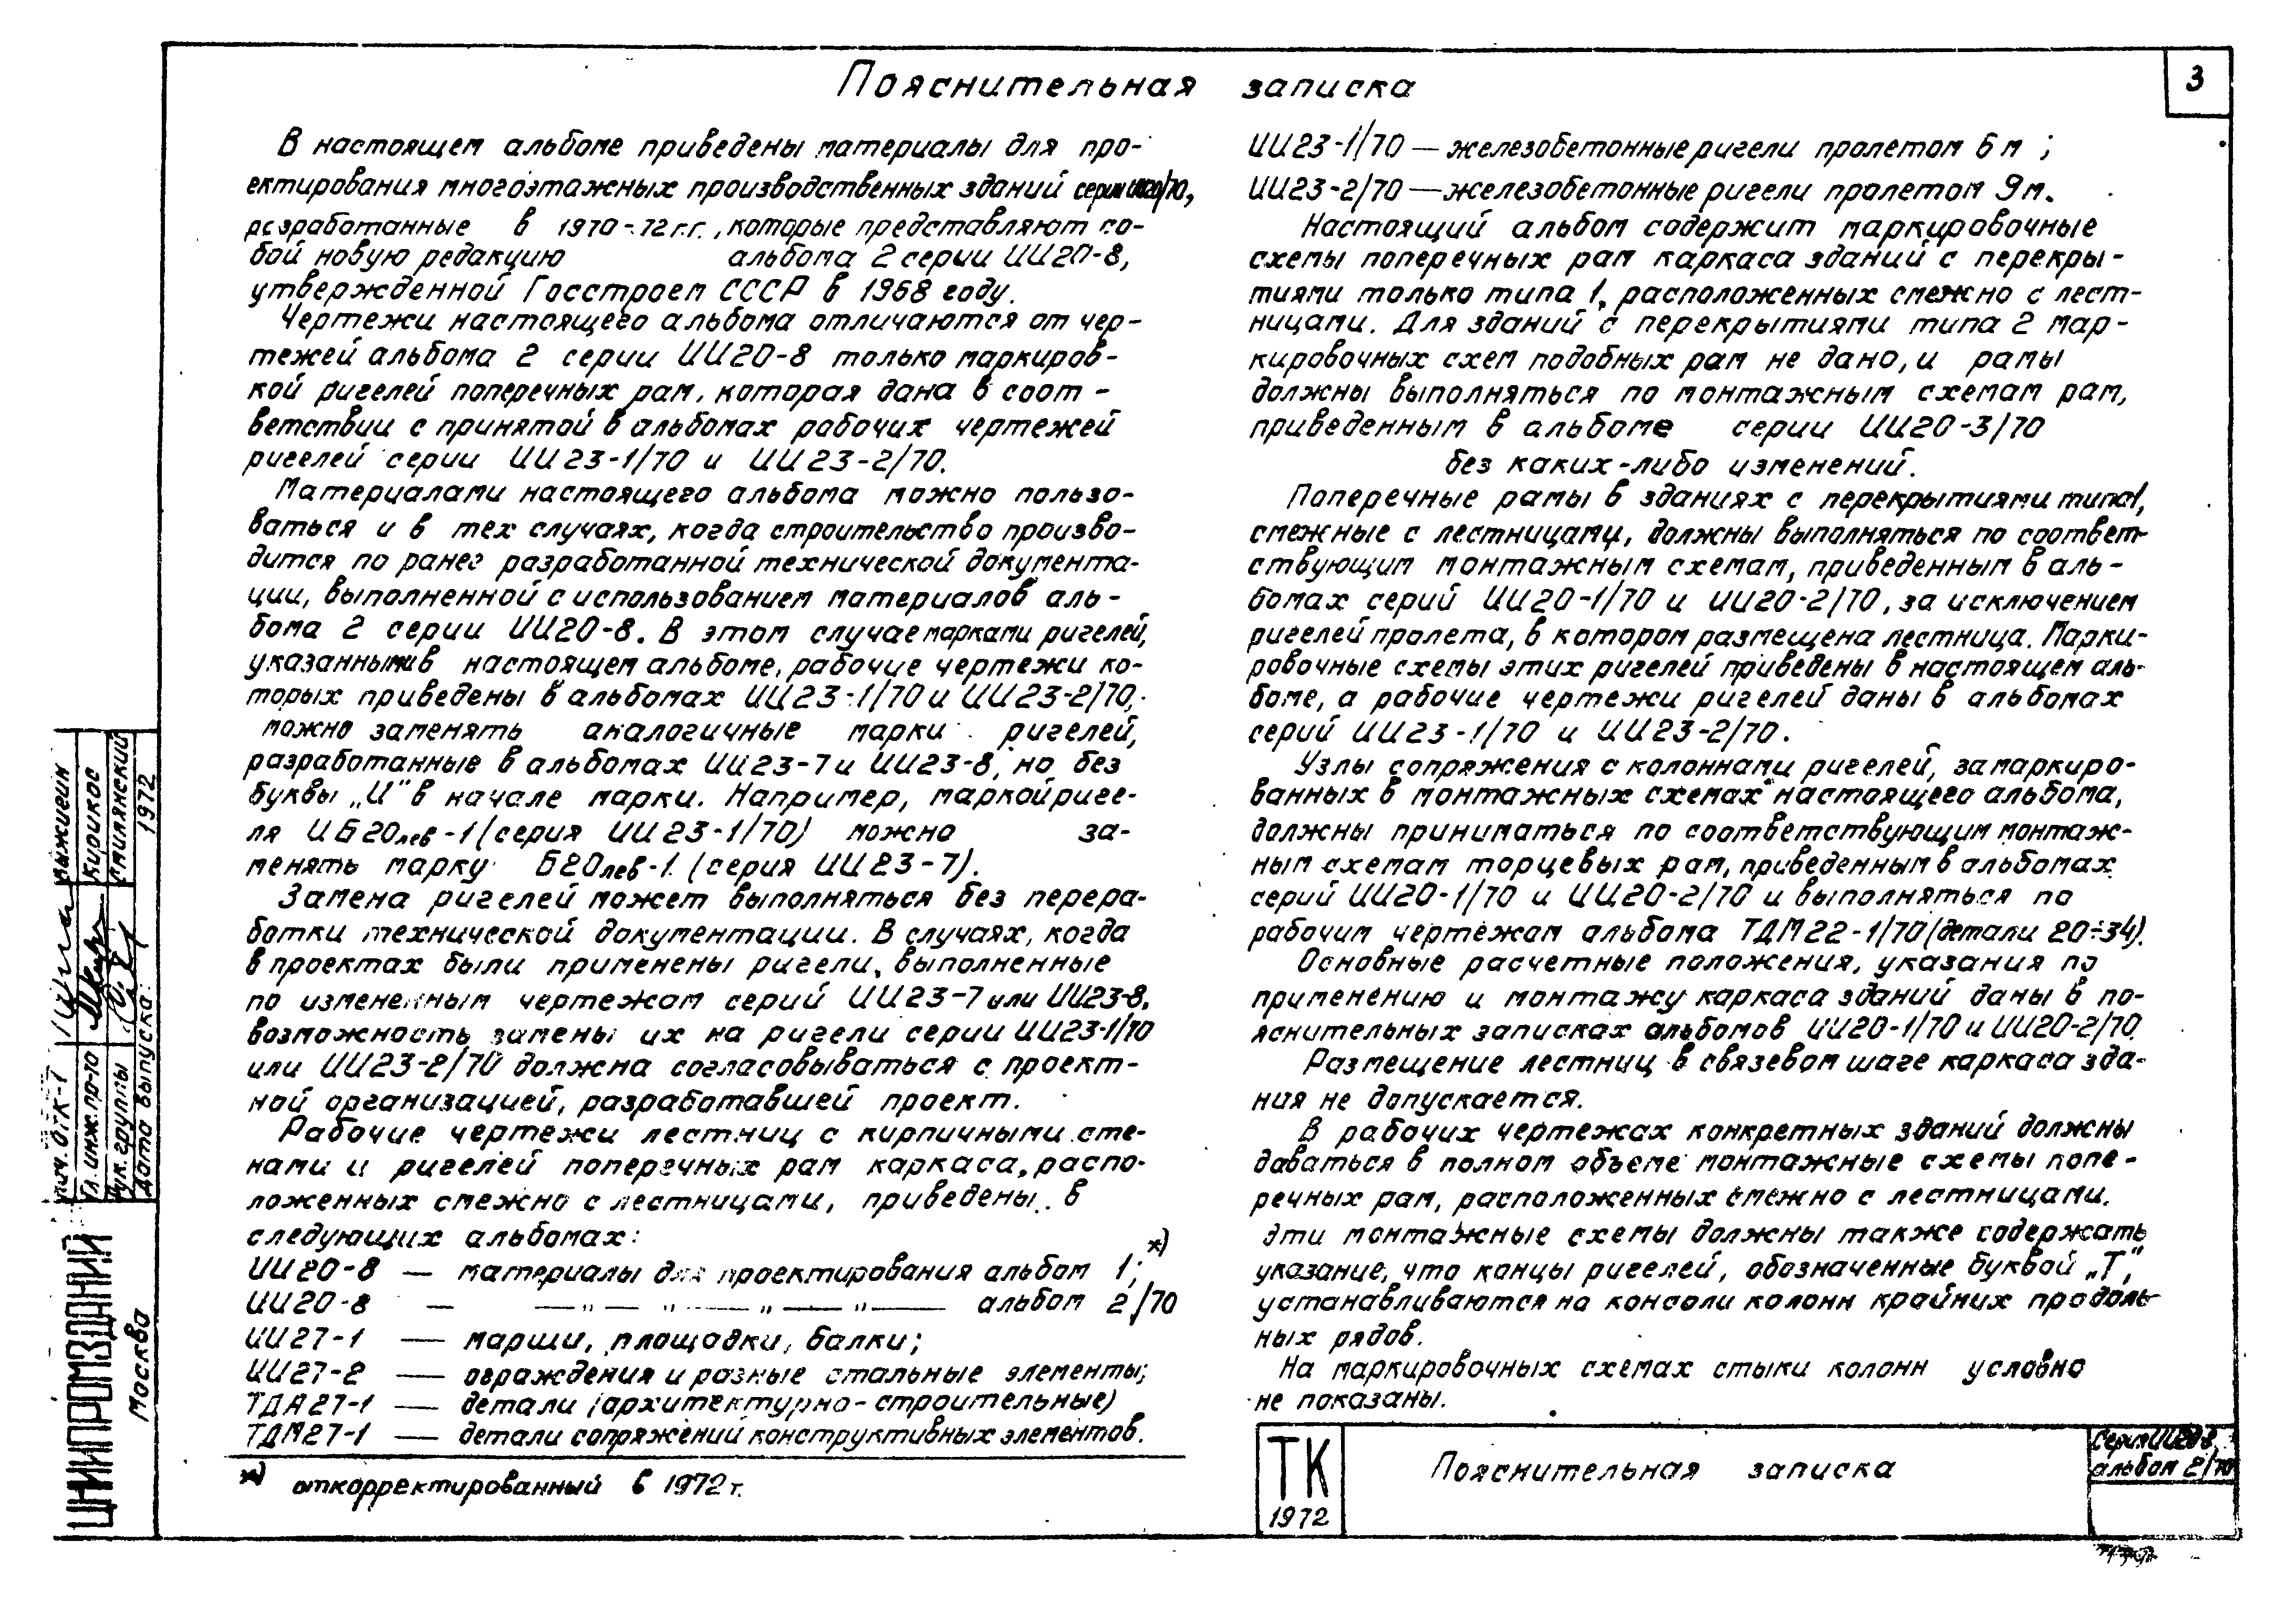 Пояснительная записка
3
В настоящем альбоме приведены материалы для про-
ектирования многоэтажных производственных зданий серии ИИ20/70,
разработанные в 1970-72 г.г., которые представляют со-
бой новую редакцию альбома 2 серии ИИ20-8,
утвержденной Госстроем СССР в 1968 году.
Чертежи настоящего альбома отличаются от чер-
тежей альбома 2 серии ИИ20-8 только маркиров-
кой ригелей поперечных рам, которая дана в соот-
ветствии с принятой в альбомах рабочих чертежей
ригелей серии ИИ23-1/70 и ИИ23-2/70.
Материалами настоящего альбома можно пользо-
ваться и в тех случаях, когда строительство произво-
дится по ранее разработанной технической документа-
ции, выполненной с использованием материалов аль-
бома 2 серии ИИ20-8. В этом случае марками ригелей,
указанными в настоящем альбоме, рабочие чертежи ко-
торых приведены в альбомах ИИ23-1/70 и ИИ23-2/70,
можно заменять аналогичные марки ригелей,
разработанные в альбомах ИИ23-7 и ИИ23-8, но без
буквы „И" в начале марки. Например, маркой риге-
ля ИБ20лев-1 (серия ИИ23-1/70) можно за-
менять марку Б20лев-1 (серия ИИ23-7).
Замена ригелей может выполняться без перера-
ботки технической документации. В случаях, когда
в проектах были применены ригели, выполненные
по измененным чертежам серий ИИ23-7 или ИИ23-8,
возможность замены их на ригели серии ИИ23-1/70
или ИИ23-2/70 должна согласовываться с проект-
ной организацией, разработавшей проект.
Рабочие чертежи лестниц с кирпичными сте-
нами и ригелей поперечных рам каркаса, распо-
ложенных смежно с лестницами, приведены в
следующих альбомах:
ИИ20-8 — материалы для проектирования альбом 1; *)
ИИ20-8 — — „ — „ — „ — „ — альбом 2/70
ИИ27-1 — марши, площадки, балки;
ИИ27-2 — ограждения и разные стальные элементы;
ТДА27-1 — детали (архитектурно-строительные)
ТДМ27-1 — детали сопряжений конструктивных элементов.
*) откорректированный в 1972 г.
ИИ23-1/70 — железобетонные ригели пролетом 6 м ;
ИИ23-2/70 — железобетонные ригели пролетом 9 м.
Настоящий альбом содержит маркировочные
схемы поперечных рам каркаса зданий с перекры-
тиями только типа 1, расположенных смежно с лест-
ницами. Для зданий с перекрытиями типа 2 мар-
кировочных схем подобных рам не дано, и рамы
должны выполняться по монтажным схемам рам,
приведенным в альбоме серии ИИ20-3/70
без каких-либо изменений.
Поперечные рамы в зданиях с перекрытиями типа 1,
смежные с лестницами, должны выполняться по соответ-
ствующим монтажным схемам, приведенным в аль-
бомах серий ИИ20-1/70 и ИИ20-2/70, за исключением
ригелей пролета, в котором размещена лестница. Марки-
ровочные схемы этих ригелей приведены в настоящем аль-
боме, а рабочие чертежи ригелей даны в альбомах
серий ИИ23-1/70 и ИИ23-2/70.
Узлы сопряжения с колоннами ригелей, замаркиро-
ванных в монтажных схемах настоящего альбома,
должны приниматься по соответствующим монтаж-
ным схемам торцевых рам, приведенным в альбомах
серий ИИ20-1/70 и ИИ20-2/70 и выполняться по
рабочим чертежам альбома ТДМ22-1/70 (детали 20÷34).
Основные расчетные положения, указания по
применению и монтажу каркаса зданий даны в по-
яснительных записках альбомов ИИ20-1/70 и ИИ20-2/70.
Размещение лестниц в связевом шаге каркаса зда-
ния не допускается.
В рабочих чертежах конкретных зданий должны
даваться в полном объеме монтажные схемы попе-
речных рам, расположенных смежно с лестницами.
Эти монтажные схемы должны также содержать
указание, что концы ригелей, обозначенные буквой „Т",
устанавливаются на консоли колонн крайних продоль-
ных рядов.
На маркировочных схемах стыки колонн условно
не показаны.
ТК
1972
Пояснительная записка
Серия ИИ20-8
альбом 2/70
ЦНИИПРОМЗДАНИЙ
Москва
Нач. ОТК-1
Гл. инж. пр-та
Рук. группы
Дата выпуска:
Кирикос
Смилянский
1972